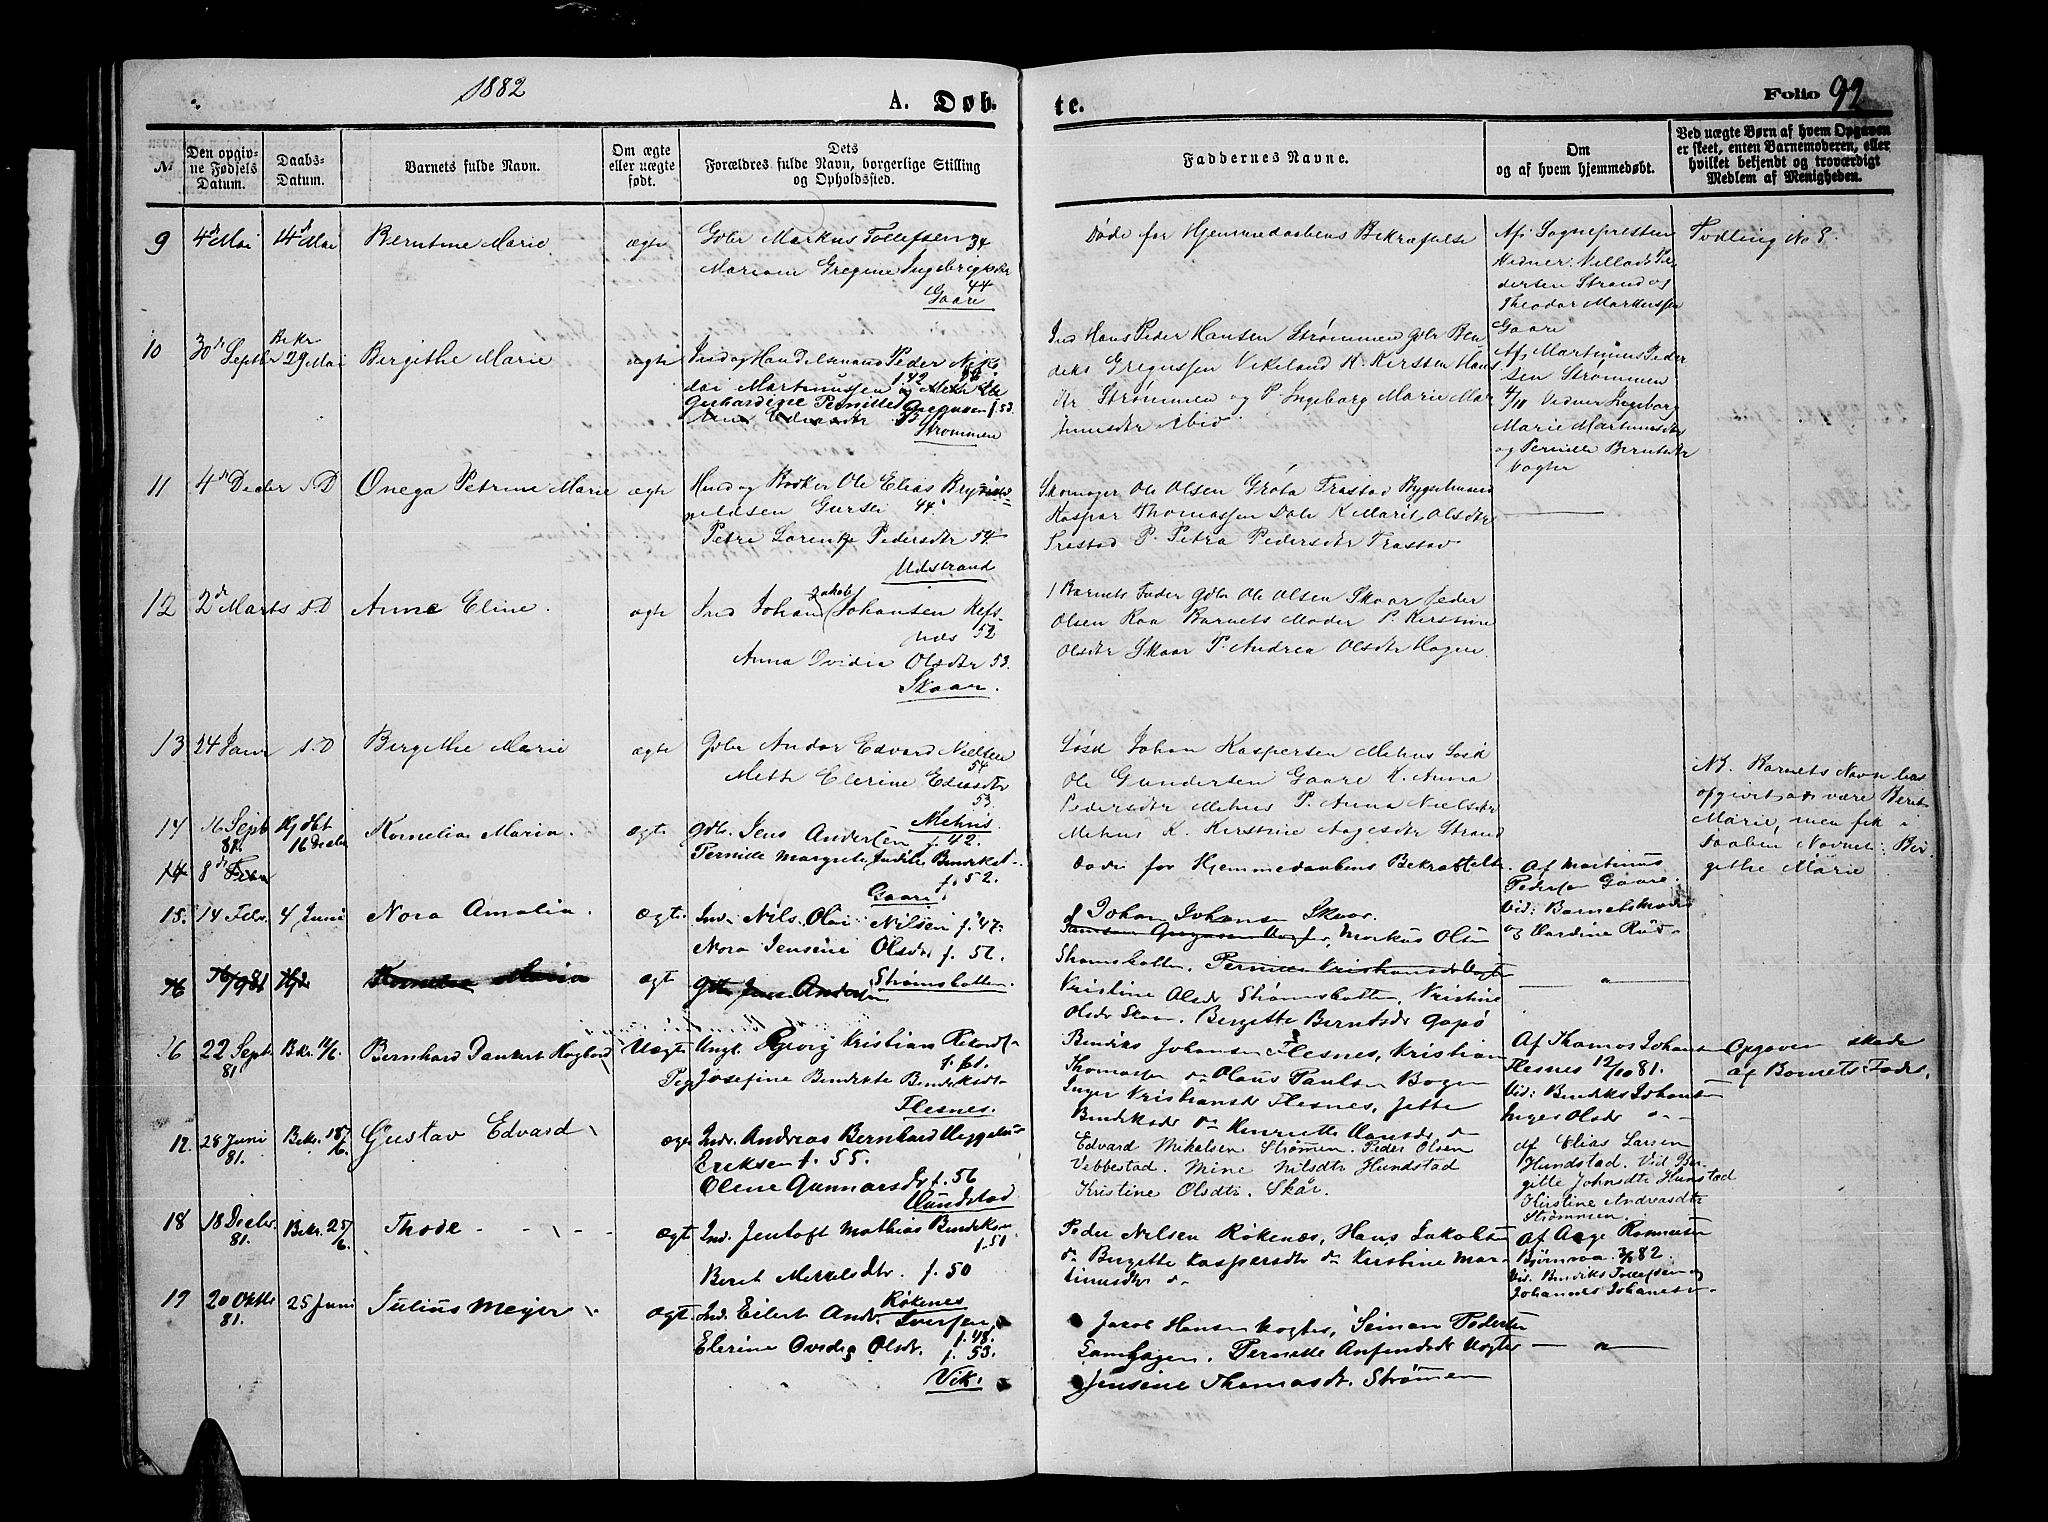 1882
A. Døb-
te.
Folio 92
№
Den opgiv-
ne Fødsels
Datum.
Daabs-
Datum.
Barnets fulde Navn.
Om ægte
eller uægte
født.
Dets
Forældres fulde Navn, borgerlige Stilling
og Opholdssted.
Faddernes Navne.
Om
og af hvem hjemmedøbt.
Ved uægte Børn af hvem Opgaven
er skeet, enten Barnemoderen, eller
hvilket bekjendt og troværdigt
Medlem af Menigheden.
9 4de Mai 14de Mai Berntine Marie ægte Gdbr Markus Tollefsen 34
Mariane Gregine Ingebrigtsdtr
44
Gaare
Døde før Hjemmedaabens Bekræftelse
Af Sognepresten
Vidner Villads Pe-
dersen Strand og
Theodor Markussen
Gaare
Tvilling No 8.
10 30de Septbr Bekr 29 Mai Bergithe Marie ægte Ind og Handelsmand Peder Niko-
lai Martinussen
Gerhardine Pernille Gregusen f. 53
Strømmen
Ind Hans Peder Hansen Strømmen Gdbr Ben-
diks Gregussen Vikeland K. Kirsten Hans
dtr Strømmen og P. Ingeborg Marie Mar-
tinusdtr ibid
Af Martinus Peder
sen Strømmen
4/10 Vidner Ingeborg
Marie Martinusdtr
og Pernille Berntsdtr
Vogter
11 4de Decbr s.D Onega Petrine Marie ægte Husd og Bødker Ole Elias Bry
nildsen Gursli 44
Petra Lorentze Pedersdtr 54
Udstrand
Skomager Ole Olsen Grøta Trastad Bygselmand
Kaspar Thomassen Dale K Marit Olsdtr
Trastad P. Petra Pedersdtr Trastad
12 2de Marts s.D Anne Eline. ægte Ind Johan Jakob Johansen Refs-
næs 52
Anna Ovidia Olsdtr 53.
Skaar.
Barnets Fader Gdbr Ole Olsen Skaar Peder
Olsen Raa Barnets Moder P. Kirstine
Olsdtr Skaar P. Andrea Olsdtr Hagen
13 24 Janr s.D Bergithe Marie ægte Gdbr Andor Edvard Nielsen
54
Mette Elerine Eliasdtr
53.
Mehus
Johan Kaspersen Mehus
Ole Gundersen Gaare K. Anna
Pedersdtr Mehus P. Anna Nielsdtr
Mehus K. Kirstine Aagesdtr Strand
NB. Barnets Navn
opgivet at være Berit
Marie, men fik i
Daaben Navnet: Ber-
githe Marie
14 16 Sept. 81. Hjdbt 16 Decbr Kornelia Maria. ægte Gdbr. Jens Andersen
f. 42.
Pernille Margrete Judite Bendiksd-
f. 52.
Gaare.
Døde før Hjemmedaabens Bekræftelse
Af Martinus
Pedersen Gaare.
Vid: Barnets
og Hardine
14 8de Febr
15. 14 Febr. 4 Juni Nora Amalia. ægt. Ind. Nils Olai Nilsen f. 47.
Nora Jensine Olsdr f. 52.
Strømsbotten.
Johan Johansen Skaar.
Markus Olsen
Strømsbotten. Pernille Kristiansdr Vogter
Kristine Olsdr Strømsbotten, Kristine
Olsdr Skaar. Bergitte Berntsdr Gapø
16 16/9 81 Hjd Kornelia Maria ægt Gdbr Jens Andersen
16 22 Sept. 81 Bekr. 11/6. Bernhard Dankert Hagbard Uægt Ungk. Georg Kristian Rikard
f. 61.
Pig. Josefine Bendikte Bendiksdt-
Flesnes.
Bendiks Johansen Flesnes, Kristian
Thomasen do Olaus Paulsen Bogen
Inger Kristiansdr Flesnes, Jette
Bendiksdr do Henriette Hansdr do
Af Thomas Johans
Flesnes 12/10 81.
Vid: Bendiks Johansen
Inger Olsdr
Opgaven skede
af Barnets Fader.
17. 28 Juni 81. Bekr. 18/6. Gustav Edvard ægt Indr. Andreas Bernhard
Eriksen f. 55.
Oline Gunnarsdr f. 56
Hundstad
Edvard Mikalsen Strømen. Peder Olsen
Vebbestad. Mine Nilsdtr Hundstad
Kristine Olsdtr. Skår.
Af Elias Larsen
Hundstad. Vid Ber-
gitte Johnsdtr Hunstad
Kirstine Andreasdtr
Strømmen.
18 18 Decbr. 81. Bekr. 25/6. Thode ægt Ind. Jentoft Mathias Bendiksen
f. 51
Beret Mikkelsdtr. f. 50
Røkenes
Peder Nilsen Røkenæs, Hans Jakobsen
do Bergitte Kaspersdtr do Kirstine Mar-
tinusdtr do
Af Aage Rasmussen
Bjørnraa. 3/1 82.
Vid. Bendiks Tollefsen og
Johannes Johanes
19 20 Oktbr 81. 25 Juni Julius Meyer ægt. Ind. Eilert Andr. Iversen
f. 48.
Elerine Ovedia Olsdr. f. 53.
Vik.
Jacob Hansen Vogter, Simon Pedersen
Lamhagen. Pernille Anfindsdr Vogter
Jensine Thomasdr. Strømen